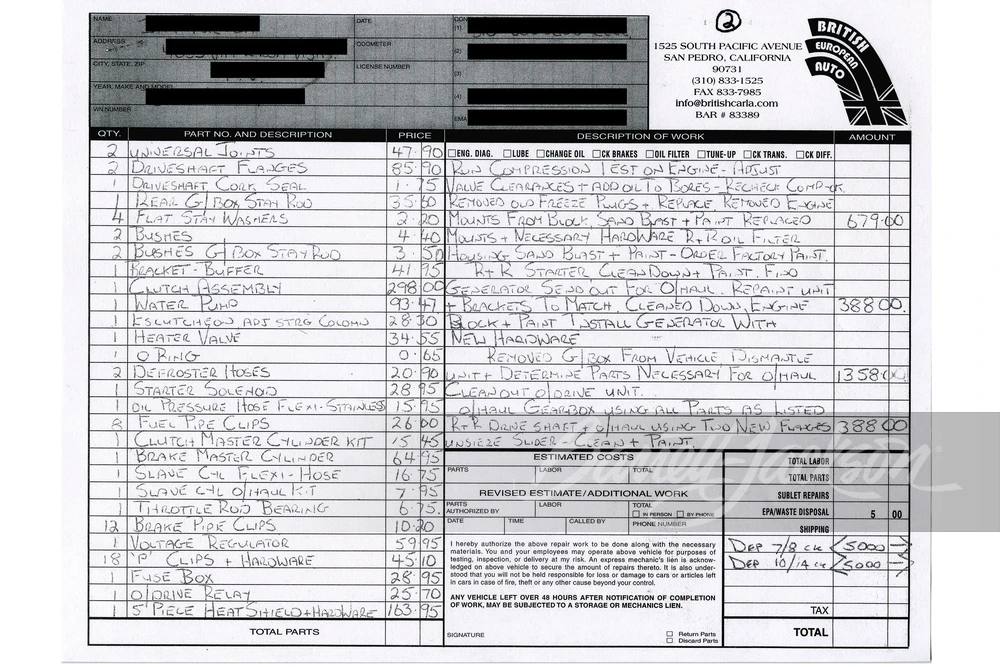 2
NAME
DATE
(1)
ADDRESS
ODOMETER
(2)
CITY, STATE, ZIP
LICENSE NUMBER
(3)
YEAR, MAKE AND MODEL
(4)
VIN NUMBER
EMA
1525 SOUTH PACIFIC AVENUE
SAN PEDRO, CALIFORNIA
90731
(310) 833-1525
FAX 833-7985
info@britishcarla.com
BAR # 83389
BRITISH
EUROPEAN
AUTO
QTY. PART NO. AND DESCRIPTION PRICE DESCRIPTION OF WORK AMOUNT
2 UNIVERSAL JOINTS 47.90 ENG. DIAG. LUBE CHANGE OIL CK BRAKES OIL FILTER TUNE-UP CK TRANS. CK DIFF.
2 DRIVESHAFT FLANGES 85.90 RUN COMPRESSION TEST ON ENGINE - ADJUST
1 DRIVESHAFT CORK SEAL 1.75 VALVE CLEARANCES + ADD OIL TO BORES - RECHECK COMP-OK.
1 REAR G/BOX STAY ROD 35.80 REMOVED OLD FREEZE PLUGS + REPLACE REMOVED ENGINE
4 FLAT STAY WASHERS 2.20 MOUNTS FROM BLOCK. SAND BLAST + PAINT REPLACED 679.00
2 BUSHES 4.40 MOUNTS + NECESSARY HARDWARE R+R OIL FILTER
2 BUSHES G/BOX STAY ROD 3.50 HOUSING SAND BLAST + PAINT - ORDER FACTORY PAINT.
1 BRACKET - BUFFER 41.95 R+R STARTER CLEAN DOWN + PAINT. FIND
1 CLUTCH ASSEMBLY 298.00 GENERATOR SEND OUT FOR O/HAUL. REPAINT UNIT
1 WATER PUMP 93.47 + BRACKETS TO MATCH. CLEANED DOWN ENGINE 388.00
1 ESCUTCHEON ADJ STRG COLUMN 28.30 BLOCK + PAINT INSTALL GENERATOR WITH
1 HEATER VALVE 34.55 NEW HARDWARE
1 O RING 0.65 REMOVED G/BOX FROM VEHICLE DISMANTLE
2 DEFROSTER HOSES 20.90 UNIT + DETERMINE PARTS NECESSARY FOR O/HAUL 1358.00
1 STARTER SOLENOID 28.95 CLEAN OUT O/DRIVE UNIT.
1 OIL PRESSURE HOSE FLEXI-STAINLESS 15.95 O/HAUL GEARBOX USING ALL PARTS AS LISTED
8 FUEL PIPE CLIPS 26.00 R+R DRIVE SHAFT + O/HAUL USING TWO NEW FLANGES 388.00
1 CLUTCH MASTER CYLINDER KIT 15.45 UNSIEZE SLIDER - CLEAN + PAINT
1 BRAKE MASTER CYLINDER 64.95
1 SLAVE CYL FLEXI-HOSE 16.75
1 SLAVE CYL O/HAUL KIT 7.95
1 THROTTLE ROD BEARING 6.75
12 BRAKE PIPE CLIPS 10.20
1 VOLTAGE REGULATOR 59.95
18 'P' CLIPS + HARDWARE 45.10
1 FUSE BOX 28.95
1 O/DRIVE RELAY 25.70
1 5 PIECE HEAT SHIELD + HARDWARE 163.95
TOTAL PARTS
ESTIMATED COSTS
PARTS LABOR TOTAL
REVISED ESTIMATE/ADDITIONAL WORK
PARTS LABOR TOTAL
AUTHORIZED BY IN PERSON BY PHONE
DATE TIME CALLED BY PHONE NUMBER
I hereby authorize the above repair work to be done along with the necessary
materials. You and your employees may operate above vehicle for purposes of
testing, inspection, or delivery at my risk. An express mechanic's lien is acknow-
ledged on above vehicle to secure the amount of repairs thereto. It is also under-
stood that you will not be held responsible for loss or damage to cars or articles left
in cars in case of fire, theft or any other cause beyond your control.
ANY VEHICLE LEFT OVER 48 HOURS AFTER NOTIFICATION OF COMPLETION
OF WORK, MAY BE SUBJECTED TO A STORAGE OR MECHANICS LIEN.
SIGNATURE
Return Parts
Discard Parts
TOTAL LABOR
TOTAL PARTS
SUBLET REPAIRS
EPA/WASTE DISPOSAL 5 00
SHIPPING
DEP 7/8 CK <5000 ->
DEP 10/14 CK <5000 ->
TAX
TOTAL
Barrett-Jackson